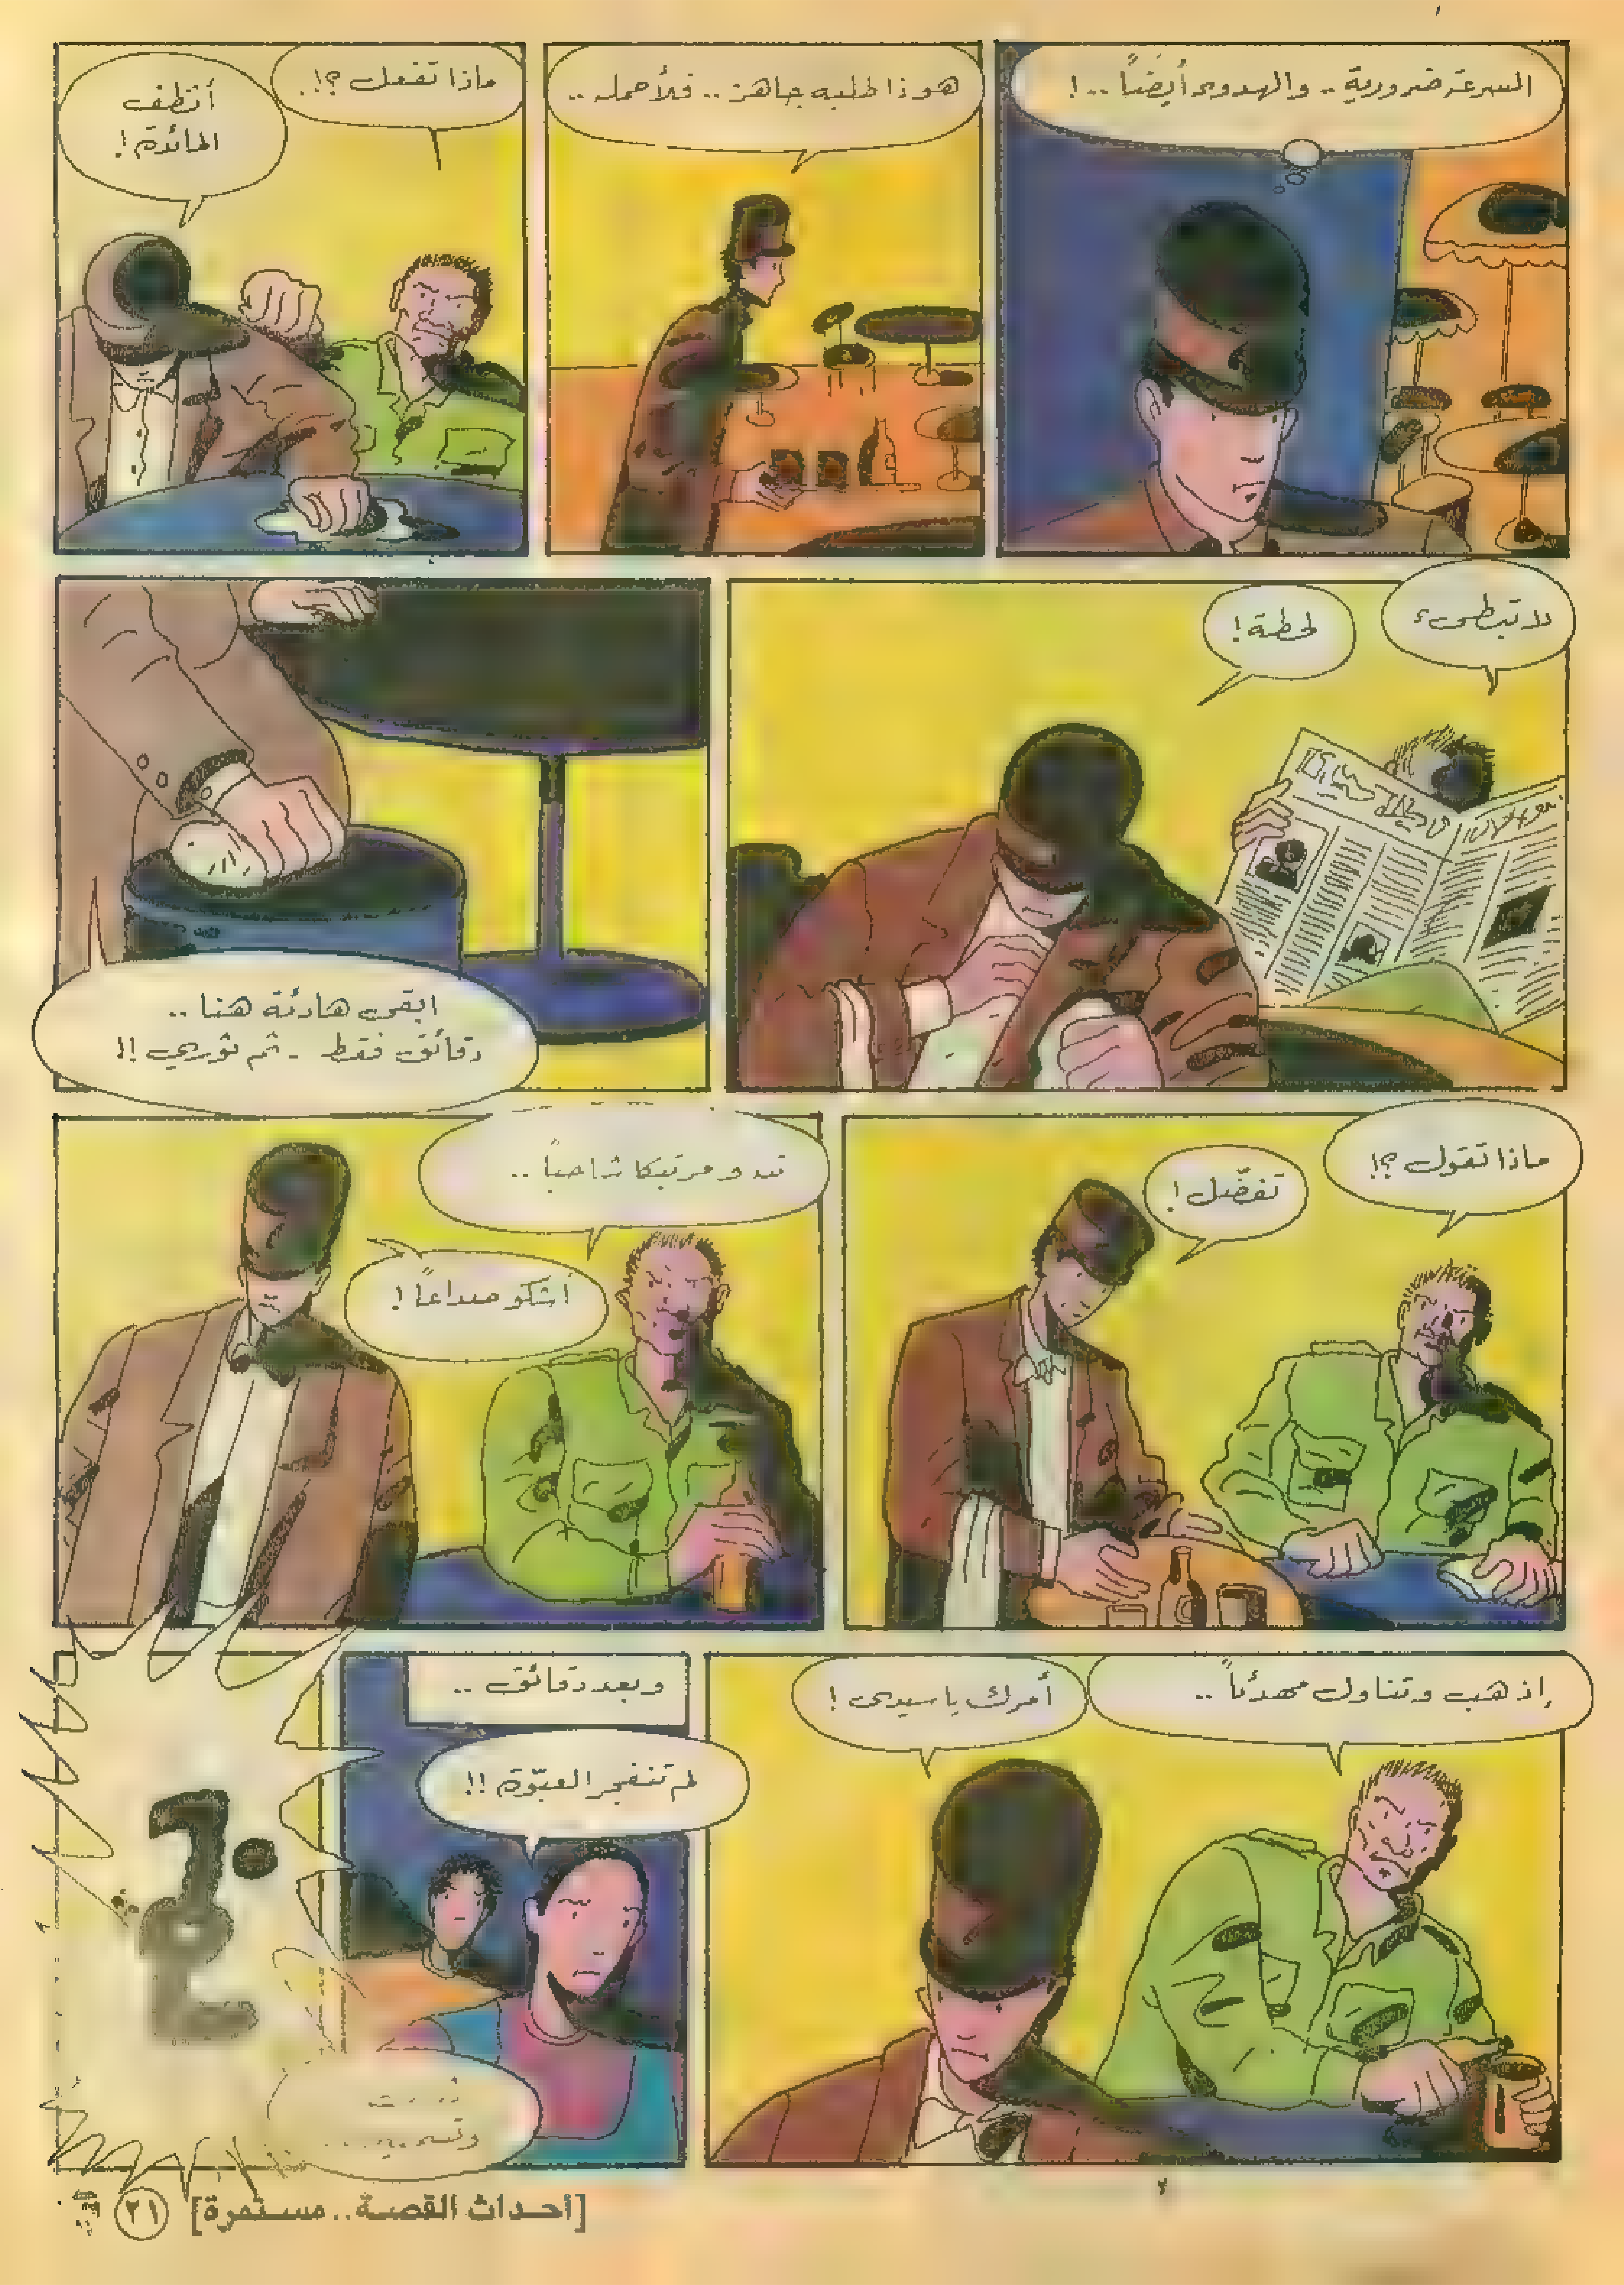 السرعة ضرورية.. والهدوء أيضاً..!
هو ذا طلبه جاهز.. فلأحمله..
ماذا تفعل؟!.
أنظف
المائدة!
لا تبطىء
لحظة!
ابقى هادئة هنا..
دقائق فقط.. ثم ثوري!!
ماذا تقول؟!
تفضّل!
تبدو مرتبكا شاحباً..
أشكو صداعاً!
إذهب وتناول مهدئاً..
أمرك يا سيدى!
وبعد دقائق..
لم تنفجر العبّوة!!
[أحداث القصة.. مستمرة]
٢١